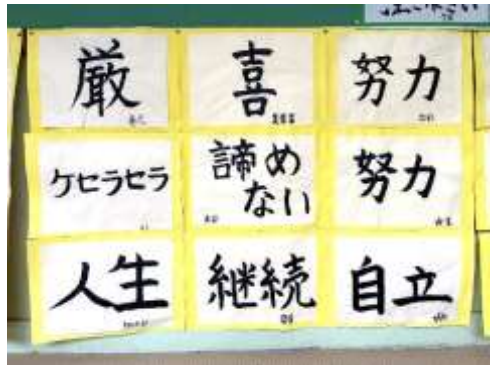 厳
喜
努力
ケセラセラ
諦め
ない
努力
人生
継続
自立